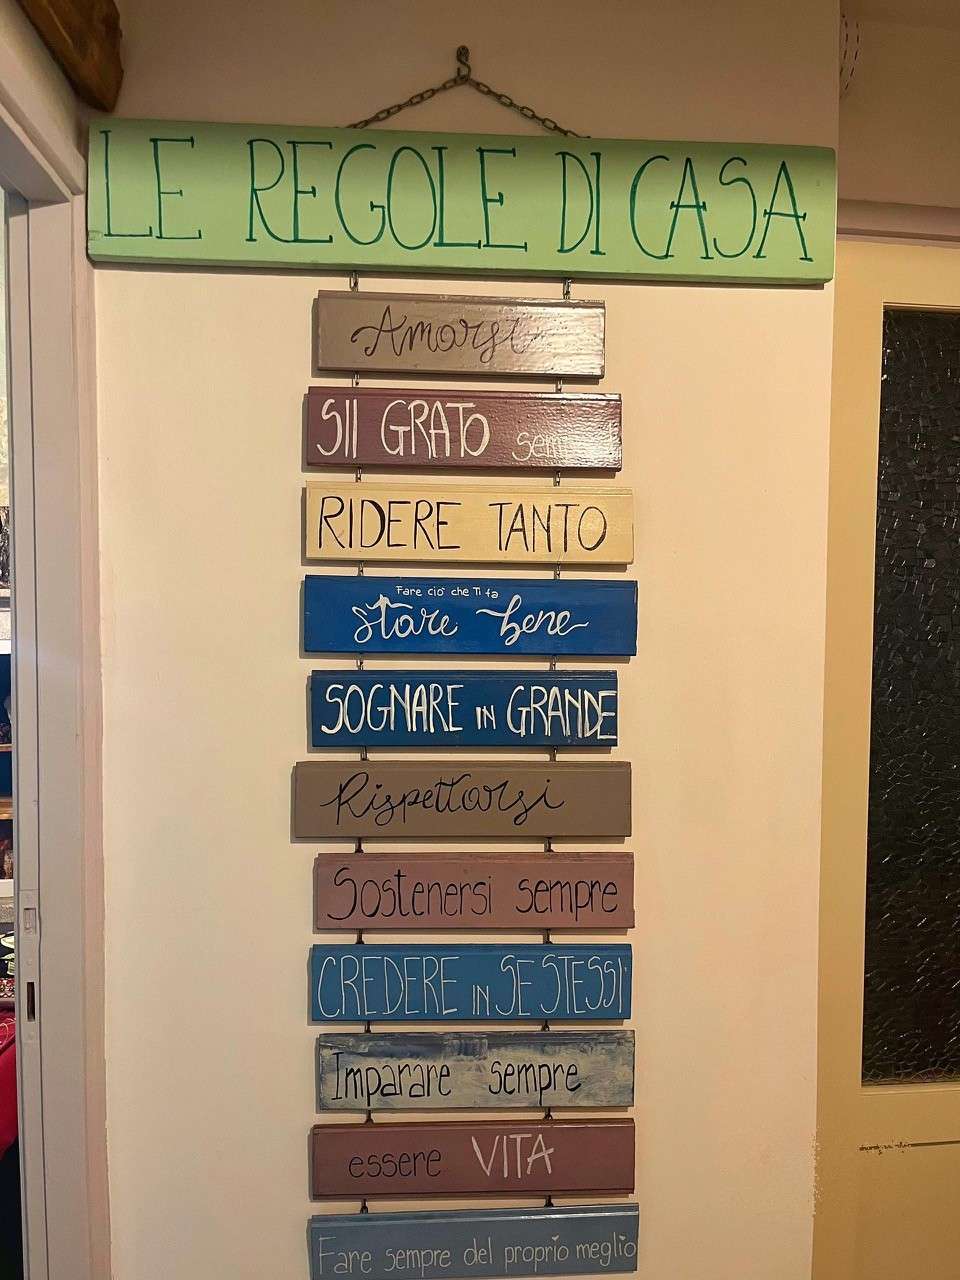 LE REGOLE DI CASA
Amarsi
SII GRATO sempre
RIDERE TANTO
Fare ciò che Ti fa
stare bene
SOGNARE IN GRANDE
Rispettarsi
Sostenersi sempre
CREDERE IN SE STESSI
Imparare sempre
essere VITA
Fare sempre del proprio meglio